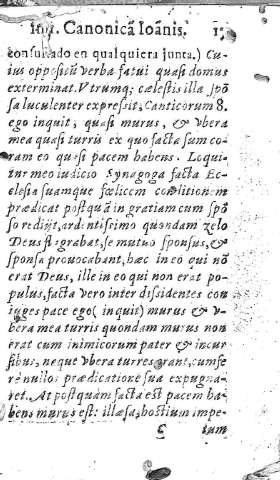 Canonicã Ioãnis. 1
consumado en qualquiera junta.) Cu-
ius oppositũ verba fatui quasi domus
exterminat. Vtrumq; cælestis illa spõ
sa luculenter expressit, Canticorum 8.
ego inquit, quasi murus, & vbera
mea quasi turris ex quo facta sum co-
ram eo quasi pacem habens. Loqui-
tur meo iudicio Synagoga facta Ec-
clesia suamque fœlicem conditionem
prædicat postquã in gratiam cum spõ
so redijt, ardentissimo quondam zelo
Deus flagrabat, se mutuo sponsus, &
sponsa prouocabant, hæc in eo qui nõ
erat Deus, ille in eo qui non erat po-
pulus, facta vero inter dissidentes con
iuges pace ego (inquit) murus & v-
bera mea turris quondam murus non
erat cum inimicorum pater & incur
sibus, neque vbera turres erant, cum se
re nullo prædicatore sua expugna-
ret. At postquàm facta est pacem ha-
bens murus est: illæsa, hostium impe-
C tum